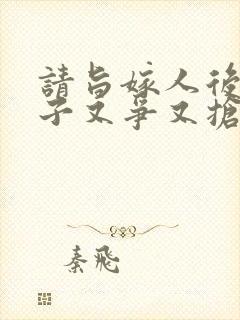 請旨嫁人後
子又爭又搶
秦飛